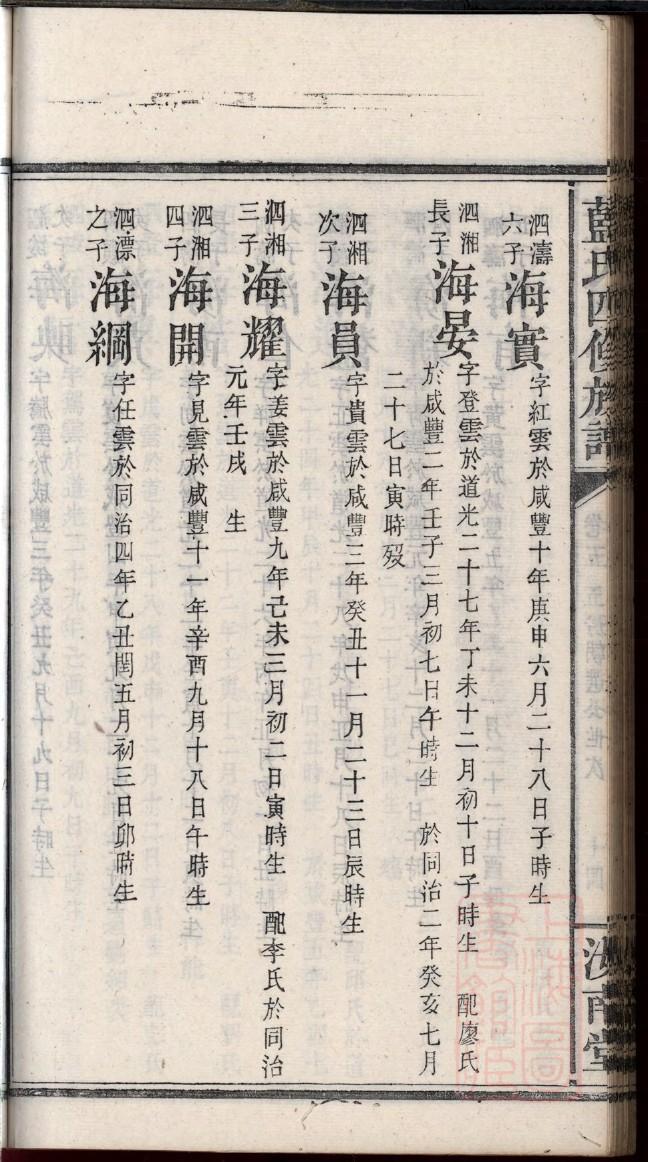 藍氏四修族譜
汝南堂
泗濤六子 海實 字紅雲於咸豐十年庚申六月二十八日子時生
泗湘長子 海晏 字登雲於道光二十七年丁未十二月初十日子時生 配廖氏
於咸豐二年壬子三月初七日午時生 於同治二年癸亥七月
二十七日寅時歿
泗湘次子 海員 字貴雲於咸豐三年癸丑十一月二十三日辰時生
泗湘三子 海耀 字姜雲於咸豐九年己未三月初二日寅時生 配李氏於同治
元年壬戌 生
泗湘四子 海開 字見雲於咸豐十一年辛酉九月十八日午時生
泗漂之子 海綱 字任雲於同治四年乙丑閏五月初三日卯時生